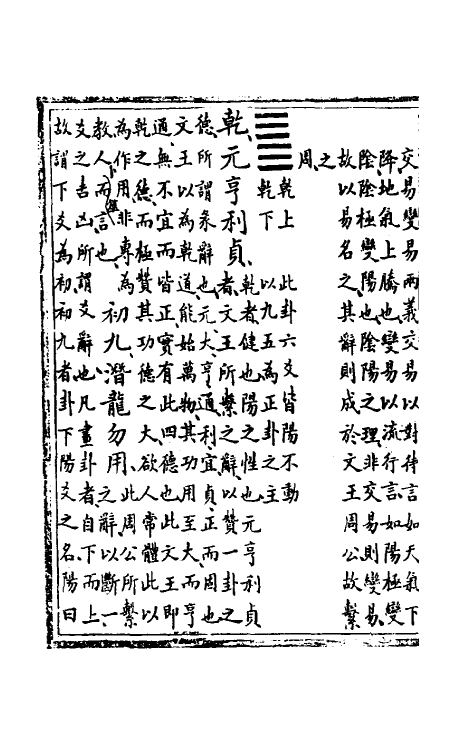 交易變易兩義交易以對待言如天氣下
降地氣上騰也變易以流行言如陽極變
陰陰極變陽也陰陽之理非交易則變易
故以易名之其辭則成於文王周公故繫
之
周
乾上 此卦六爻皆陽不動
乾下 以九五為正卦之主
乾元亨利貞 乾者健也陽之性也元亨利貞
者文王所繫之辭以贊一卦之
德所謂彖辭也元大亨通利宜貞正而固也
文王以為乾道能始萬物其功用至大而亨
通無不宜而皆正實有此四德也此文王即
乾之德而極贊其功德之大欲人常體此以
為作用非專為
教人而言也
初九潛龍勿用 此周公所繫
之辭以斷一
爻之吉凶所謂爻辭也凡畫卦者自下而上
故謂下爻為初初九者卦下陽爻之名陽曰